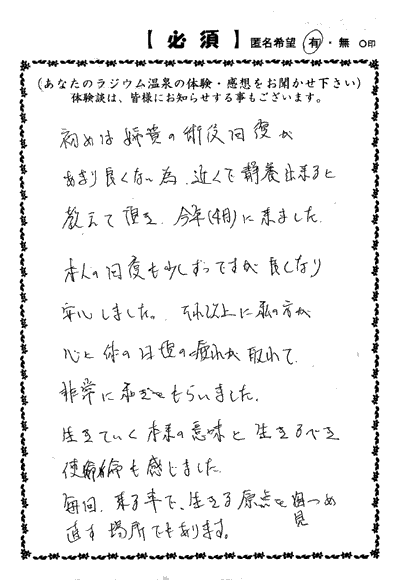 【必須】 匿名希望 有・無 ○印
(あなたのラジウム温泉の体験・感想をお聞かせ下さい)
体験談は、皆様にお知らせする事もございます。
初めは姉貴の術後回復が
あまり良くない為、近くで静養出来ると
教えて頂き、今年(4月)に来ました。
本人の回復も少しずつですが良くなり
安心しました。それ以上に私の方が
心と体の日頃の疲れが取れて、
非常に
もらいました。
生きていく本来の意味と生きるべき
使命も感じました。
毎回、来る事で、生きる原点を見つめ
直す場所でもあります。